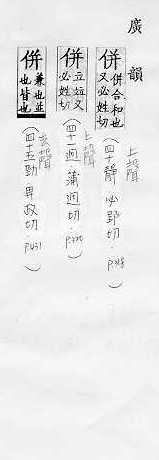 廣韻
併 併合和也又必姓切
上聲
(四十靜·必郢切·P.318)
併 立竝又必姓切
上聲
(四十一迥·蒲迥切·P.320)
併 兼也並也皆也
去聲
(四十五勁·畀政切·P.431)